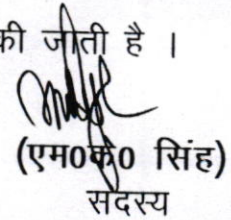 की जाती है ।
(एम0के0 सिंह)
सदस्य